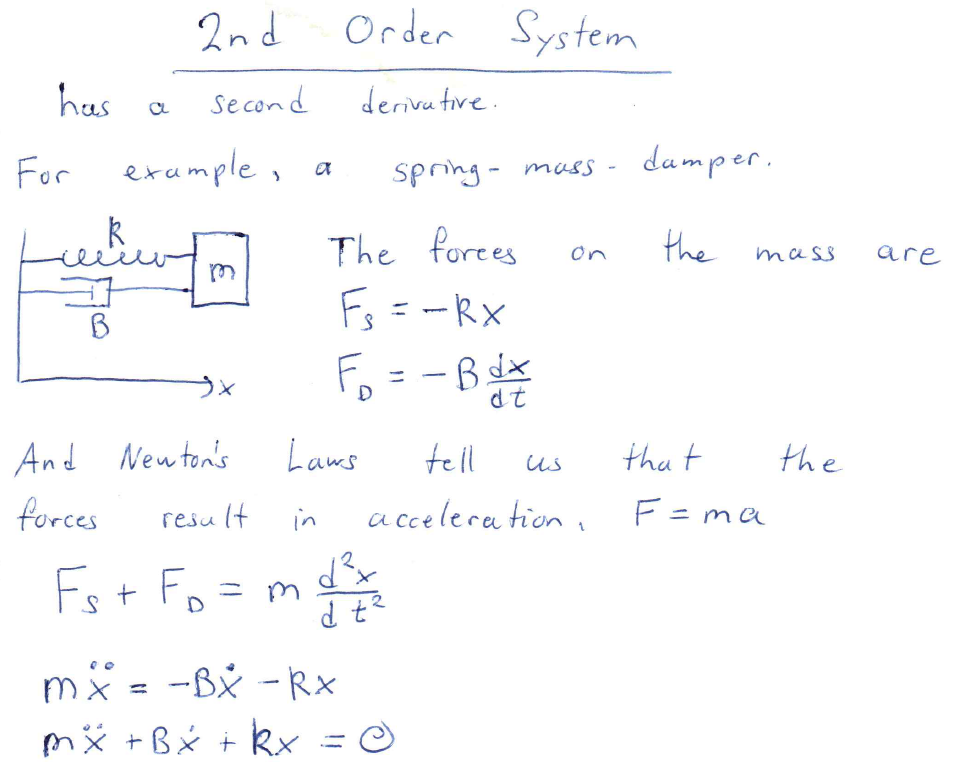 2nd Order System
has a second derivative.
For example, a spring-mass-damper.
k
m
B
x
The forces on the mass are
F_S = -kx
F_D = -B dx/dt
And Newton's Laws tell us that the
forces result in acceleration, F = ma
F_S + F_D = m d²x/dt²
mẍ = -Bẋ - kx
mẍ + Bẋ + kx = 0